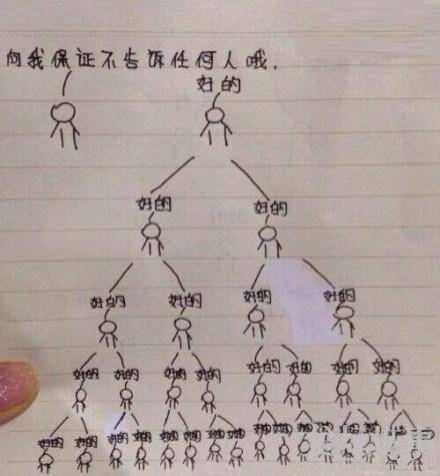 向我保证不告诉任何人哦.
好的
好的 好的
好的 好的 好的 好的
好的 好的 好的 好的 好的 好的 好的 好的
好的 好的 好的 好的 好的 好的 好的 好的 好的 好的 好的 好的